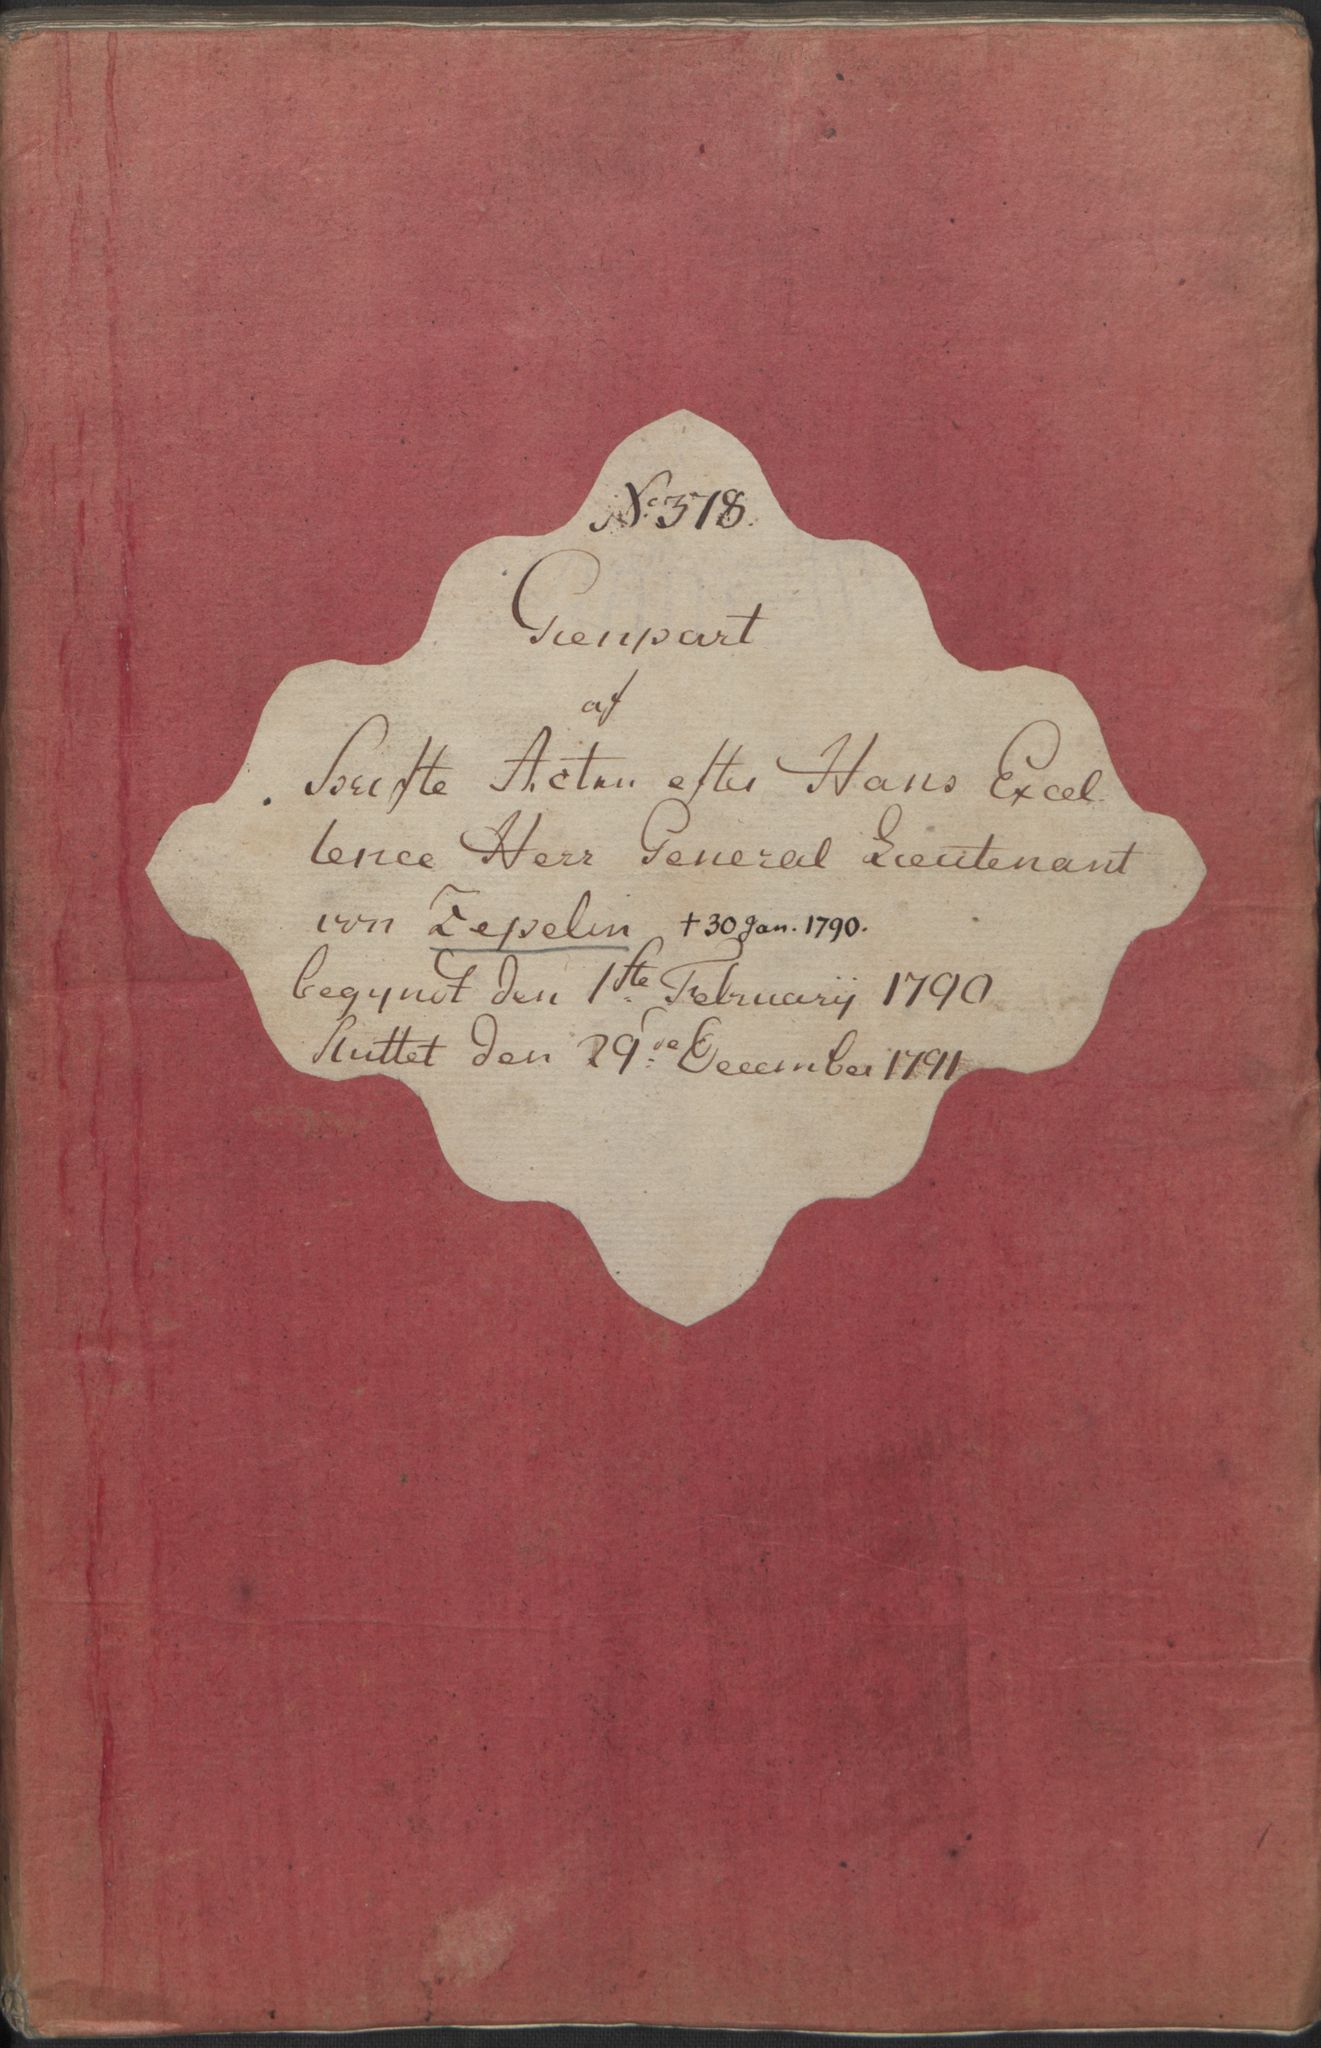 No 378.
Gienpart
af
Skifte Acten efter Hans Excel
lence Herr General Lieutenant
von Zepelin † 30 Jan. 1790.
begyndt den 1ste February 1790
Sluttet den 29de December 1791